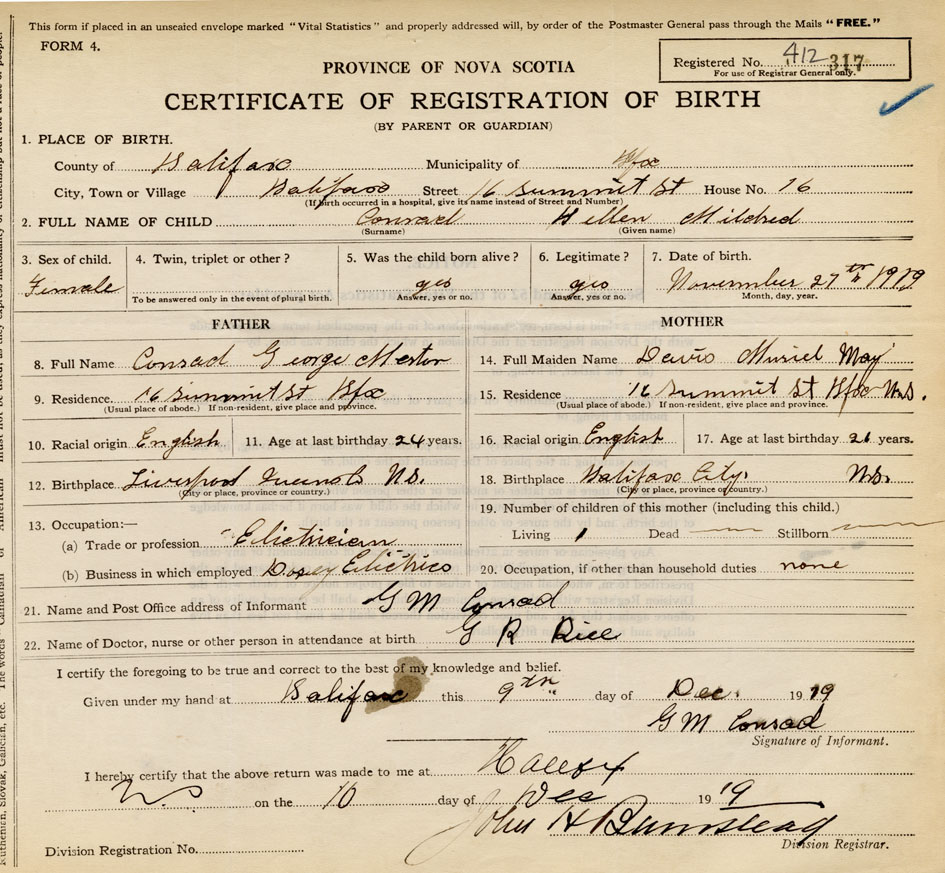 This form if placed in an unsealed envelope marked "Vital Statistics" and properly addressed will, by order of the Postmaster General pass through the Mails "FREE."
FORM 4.
Registered No. 412 317
For use of Registrar General only.
PROVINCE OF NOVA SCOTIA
CERTIFICATE OF REGISTRATION OF BIRTH
(BY PARENT OR GUARDIAN)
1. PLACE OF BIRTH.
County of Halifax Municipality of Hfx
City, Town or Village Halifax Street 16 Summit St House No. 16
(If birth occurred in a hospital, give its name instead of Street and Number)
2. FULL NAME OF CHILD Conrad Hellen Mildred
(Surname) (Given name)
3. Sex of child. 4. Twin, triplet or other? 5. Was the child born alive? 6. Legitimate? 7. Date of birth.
Female yes yes November 27th 1919
To be answered only in the event of plural birth. Answer, yes or no. Answer, yes or no. Month, day, year.
FATHER MOTHER
8. Full Name Conrad George 14. Full Maiden Name Davis Muriel May
9. Residence. 16 Summit St Hfx 15. Residence 16 Summit St Hfx N.S.
(Usual place of abode.) If non-resident, give place and province. (Usual place of abode.) If non-resident, give place and province.
10. Racial origin English 11. Age at last birthday 24 years. 16. Racial origin English 17. Age at last birthday 21 years.
12. Birthplace Liverpool NS. 18. Birthplace Halifax City. NS.
(City or place, province or country.) (City or place, province or country.)
13. Occupation:— 19. Number of children of this mother (including this child.)
(a) Trade or profession Elictrician Living 1 Dead Stillborn
(b) Business in which employed Elictrico 20. Occupation, if other than household duties none
21. Name and Post Office address of Informant G M Conrad
22. Name of Doctor, nurse or other person in attendance at birth G R Rice
I certify the foregoing to be true and correct to the best of my knowledge and belief.
Given under my hand at Halifax this 9th day of Dec. 1919
G M Conrad
Signature of Informant.
I hereby certify that the above return was made to me at Halifax
N S on the 10 day of Dec 1919
John H Bumstead
Division Registrar.
Division Registration No.